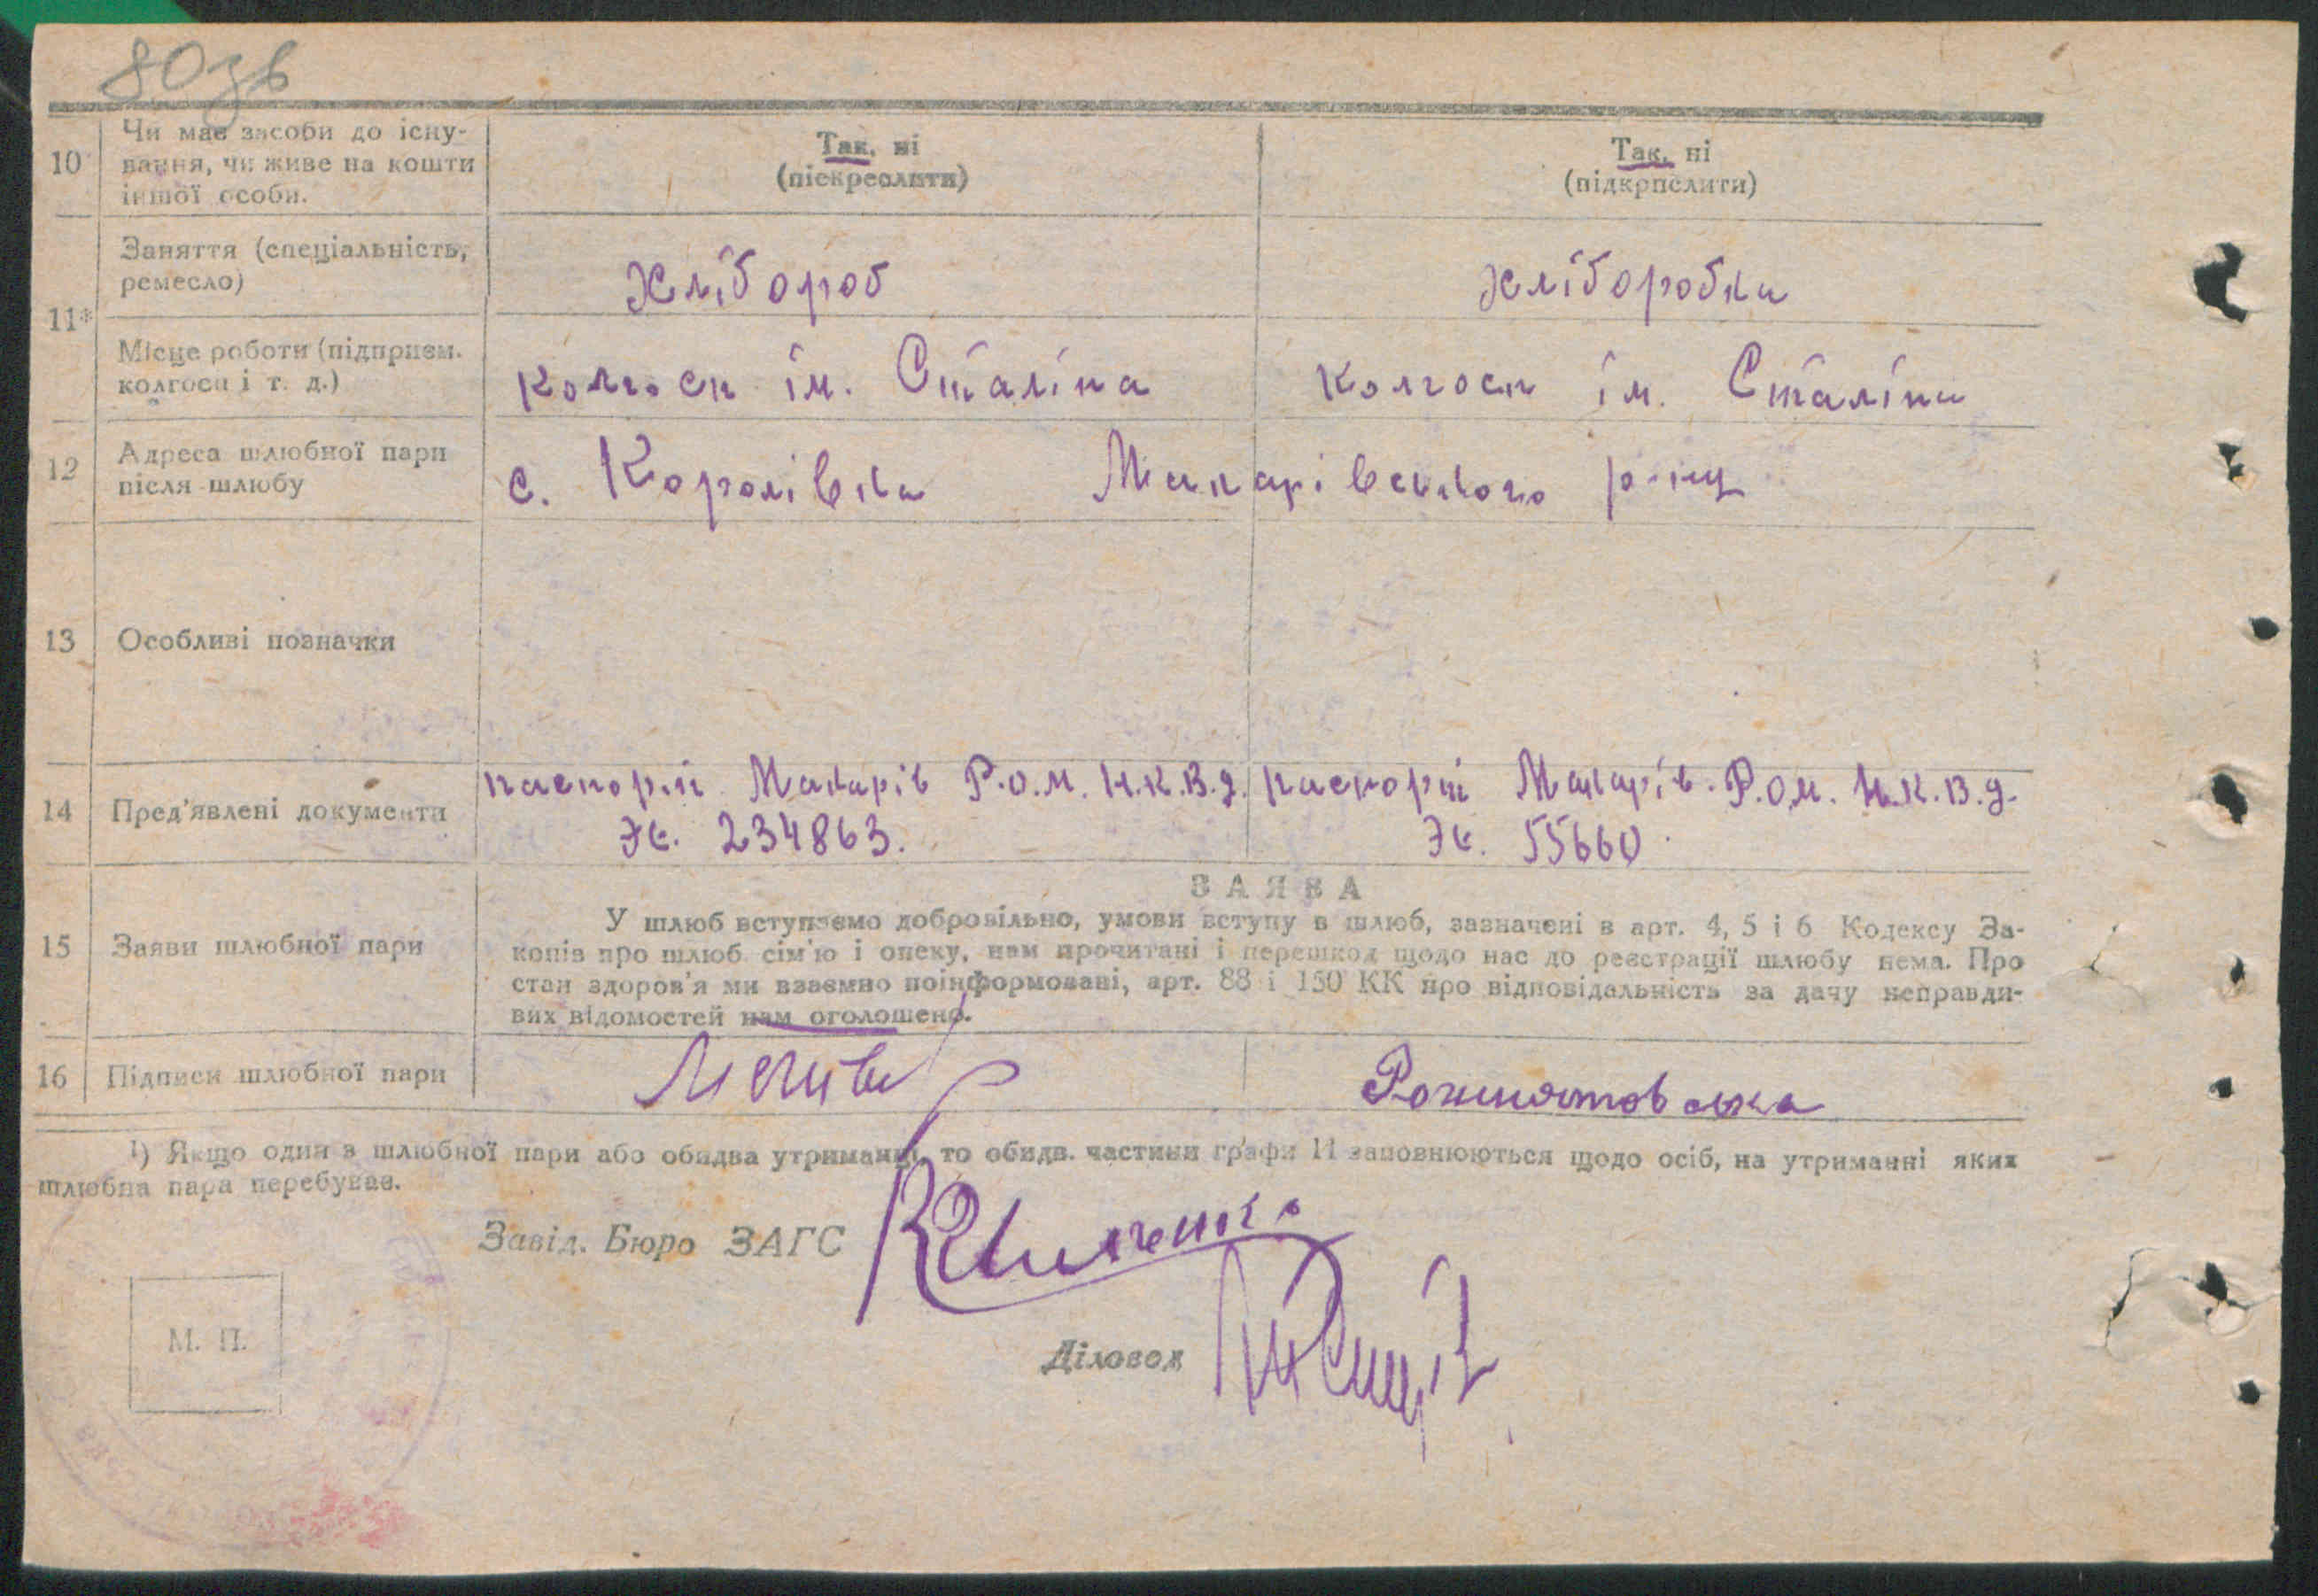 80зв
10 Чи має засоби до існу-
вання, чи живе на кошти
іншої особи.
Так, ні
(піскреслити)
Так, ні
(підкрпслити)
11*
Заняття (спеціальність,
ремесло)
Хлібороб
Хліборобка
Місце роботи (підприєм.
колгосп і т. д.)
колгосп ім. Сталіна
колгосп ім. Сталіна
12 Адреса шлюбної пари
після шлюбу
с. Королівка Макарівського р-ну
13 Особливі позначки
14 Пред'явлені документи
паспорт Макарів Р.О.М. Н.К.В.Д.
ЭЄ. 234863.
паспорт Макарів. Р.О.М. Н.К.В.Д.
ЭЄ. 55660
15 Заяви шлюбної пари
ЗАЯВА
У шлюб вступаємо добровільно, умови вступу в шлюб, зазначені в арт. 4, 5 і 6 Кодексу За-
конів про шлюб сім'ю і опеку, нам прочитані і перешкод щодо нас до реєстрації шлюбу нема. Про
стан здоров'я ми взаємно поінформовані, арт. 88 і 150 КК про відповідальність за дачу неправди-
вих відомостей нам оголошено.
16 Підписи шлюбної пари
¹) Якщо один з шлюбної пари або обидва утриманці, то обидв. частини графи 11 заповнюються щодо осіб, на утриманні яких
шлюбна пара перебуває.
Завід. Бюро ЗАГС
М. П.
Діловод